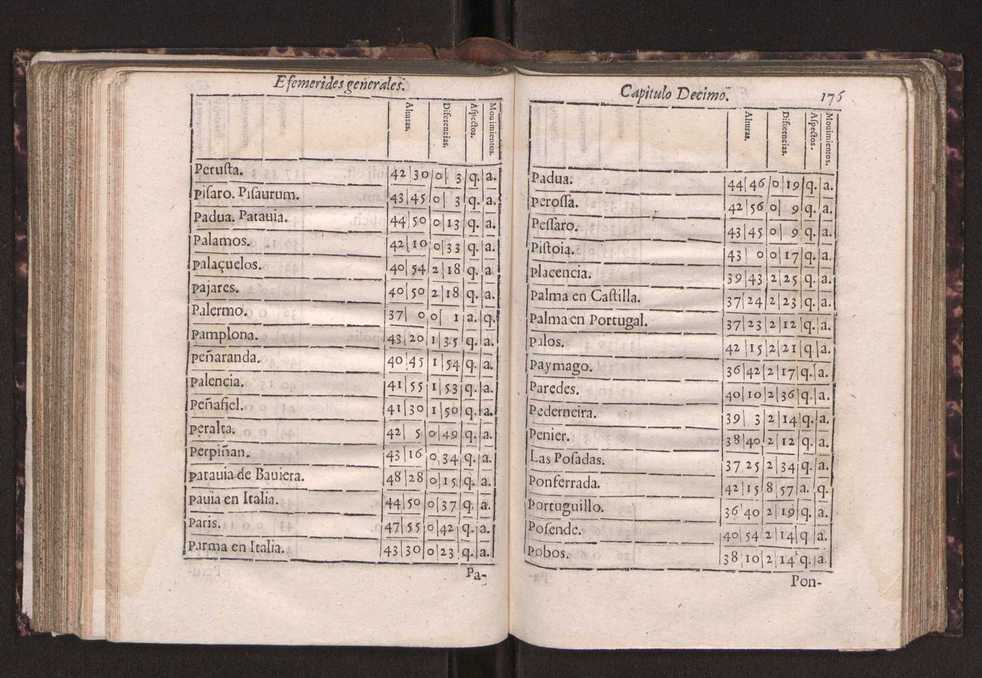 Efemerides generales.
Alturas. Diferencias. Aspectos. Mouimientos.
Perusta. 42 30 0 3 q. a.
Pisaro. Pisaurum. 43 45 0 3 q. a.
Padua. Patauia. 44 50 0 13 q. a.
Palamos. 42 10 0 33 q. a.
Palaçuelos. 40 54 2 18 q. a.
Pajares. 40 50 2 18 q. a.
Palermo. 37 0 0 1 a. q.
Pamplona. 43 20 1 35 q. a.
Peñaranda. 40 45 1 54 q. a.
Palencia. 41 55 1 53 q. a.
Peñafiel. 41 30 1 50 q. a.
Peralta. 42 5 0 49 q. a.
Perpiñan. 43 16 0 34 q. a.
Patauia de Bauiera. 48 28 0 15 q. a.
Pauia en Italia. 44 50 0 37 q. a.
Paris. 47 55 0 42 q. a.
Parma en Italia. 43 30 0 23 q. a.
Pa-
Capitulo Decimo. 176
Alturas. Diferencias. Aspectos. Mouimientos.
Padua. 44 46 0 19 q. a.
Perossa. 42 56 0 9 q. a.
Pessaro. 43 45 0 9 q. a.
Pistoia. 43 0 0 17 q. a.
Placencia. 39 43 2 25 q. a.
Palma en Castilla. 37 24 2 23 q. a.
Palma en Portugal. 37 23 2 12 q. a.
Palos. 42 15 2 21 q a.
Paymago. 36 42 2 17 q. a.
Paredes. 40 10 2 36 q. a.
Pederneira. 39 3 2 14 q. a.
Penier. 38 40 2 12 q. a.
Las Posadas. 37 25 2 34 q. a.
Ponferrada. 42 15 8 57 a. q.
Portuguillo. 36 40 2 19 q. a.
Posende. 40 54 2 14 q a.
Pobos. 38 10 2 14 q. a.
Pon-